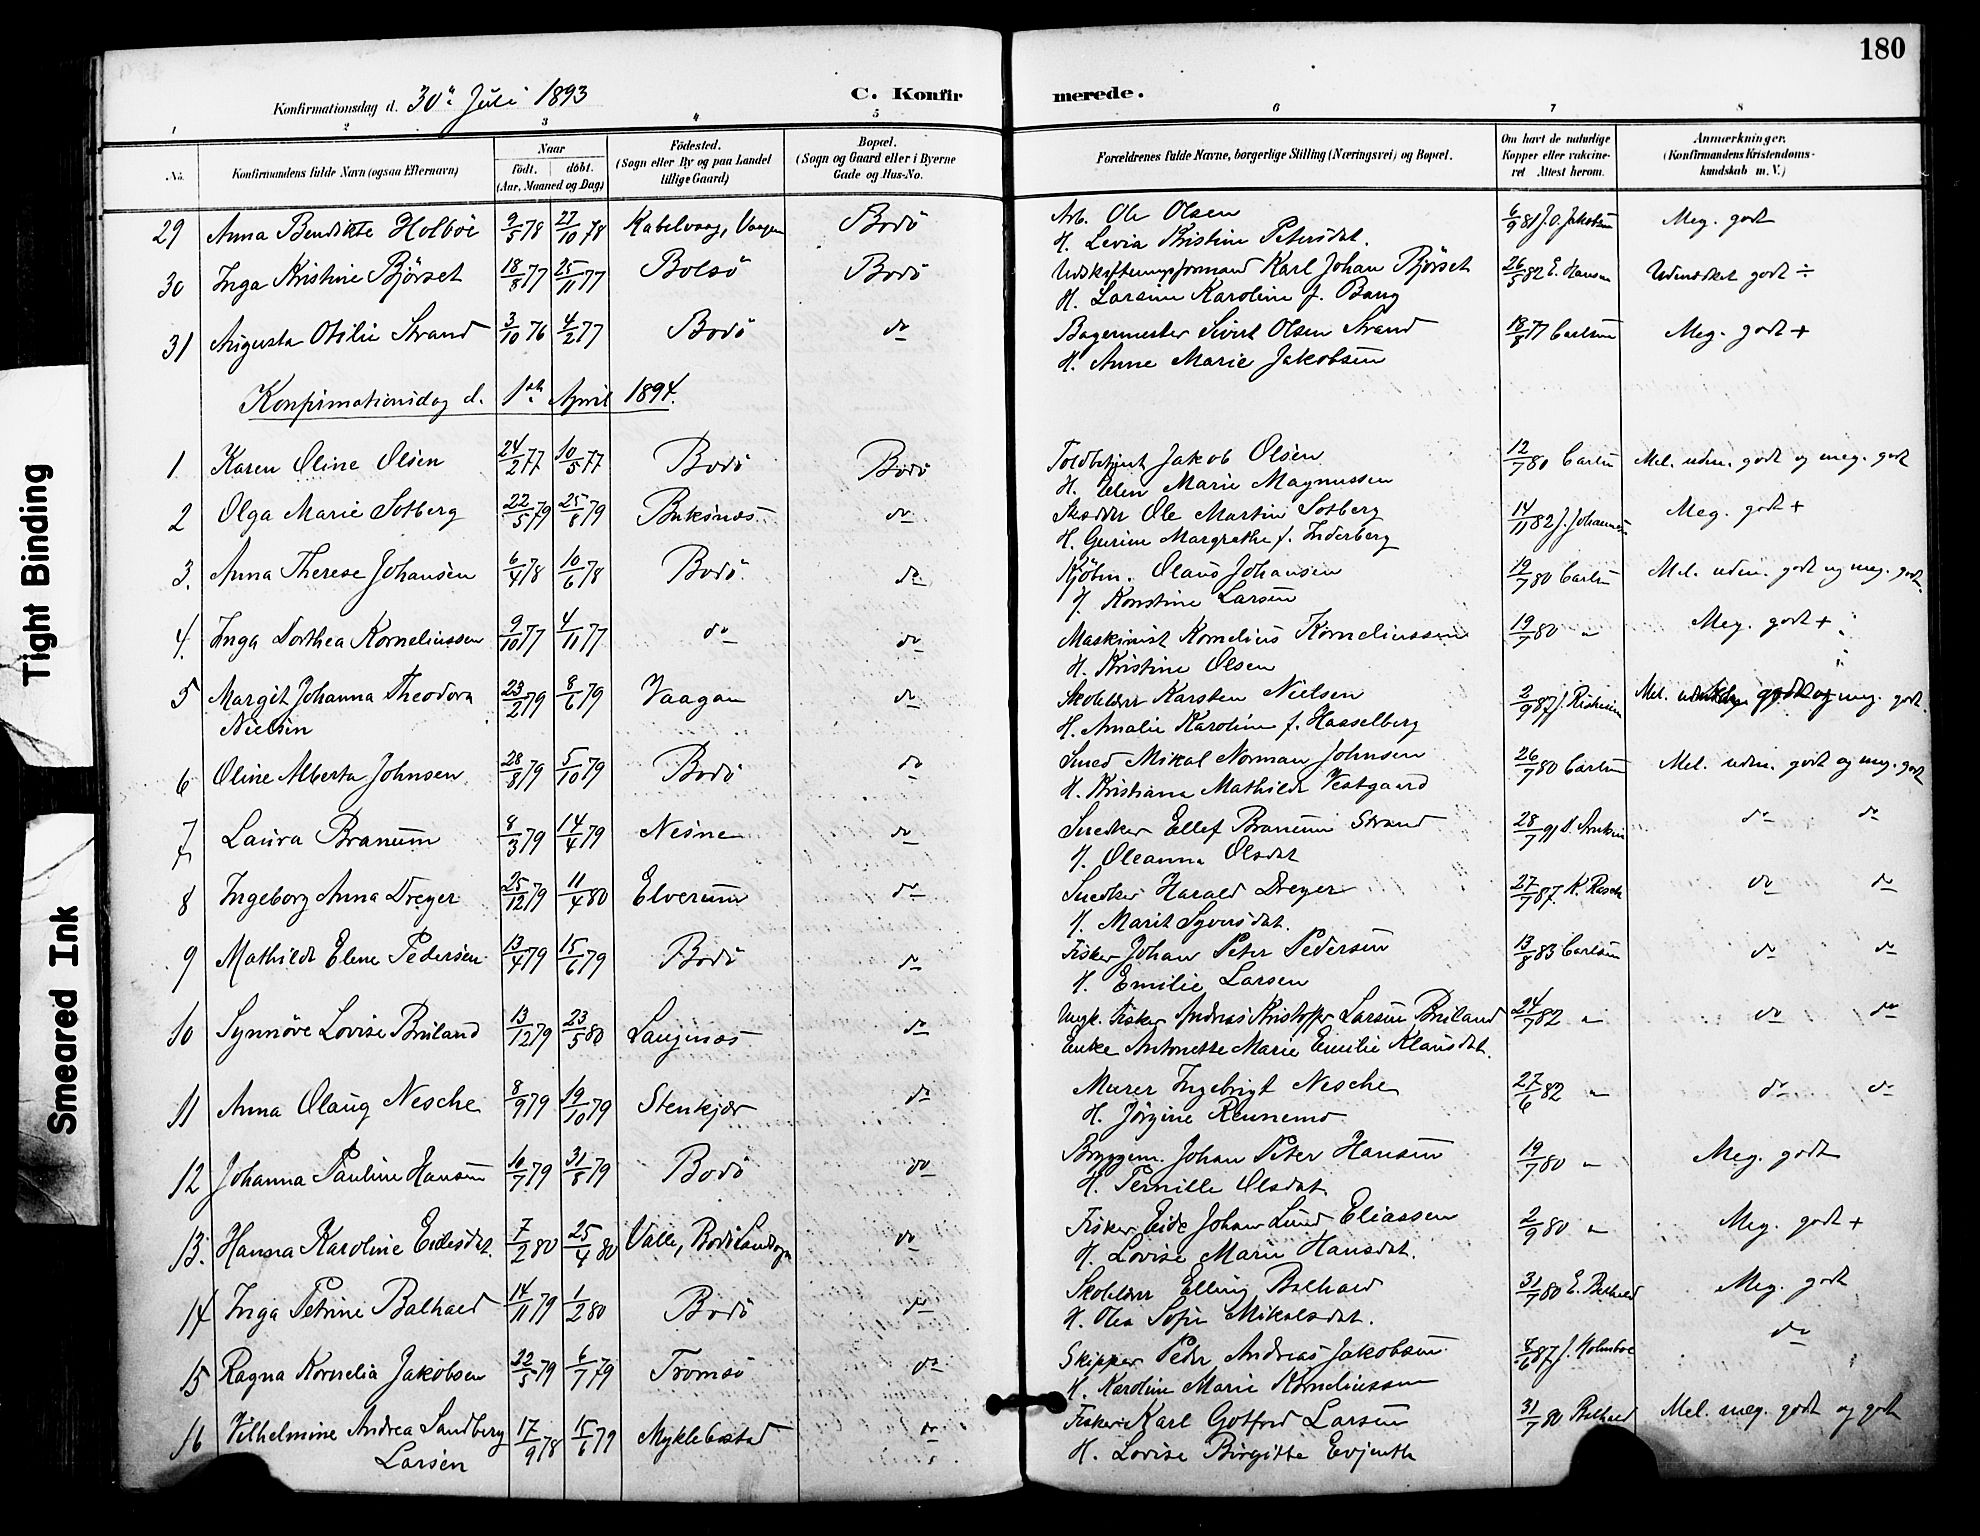 180
Konfirmationsdag d. 30te Juli 1893
C. Konfirmerede.
1 2 3 4 5 6 7 8
No.
Konfirmandens fulde Navn (ogsaa Efternavn)
Naar
født. døbt.
(Aar, Maaned og Dag)
Fødested.
(Sogn eller By og paa Landet
tillige Gaard)
Bopæl.
(Sogn og Gaard eller i Byerne
Gade og Hus-No.
Forældrenes fulde Navne, borgerlige Stilling (Næringsvei) og Bopæl.
Om havt de naturlige
Kopper eller vakcine-
ret Attest herom.
Anmærkninger,
(Konfirmandens Kristendoms-
kundskab m. V.)
29 Anna Bendikte Holböe 9/5 78 27/10 78 Kabelvaag, Vaagan Bodö Arb. Ole Olsen 6/9 81 J. O. Jakobsen Meg. godt
H. Levia Kristine Petersdat.
30 Inga Kristine Björset 18/8 77 25/11 77 Bolsö Bodö Udskiftningsformand Karl Johan Björset 26/5 82 E. Hansen Udmærket godt ÷
H. Larsine Karoline f. Bang
31 Augusta Otilie Strand 3/10 76 4/2 77 Bodö do Bagermester Sivert Olsen Strand 18/8 77 Carlsen Meg. godt +
H. Anne Marie Jakobsen
Konfirmationsdag d. 1ste April 1894.
1 Karen Oline Olsen 24/2 77 10/5 77 Bodö Bodö Toldbetjent Jakob Olsen 12/7 80 Carlsen Mel. udm. godt og meg. godt
H. Elen Marie Magnussen
2 Olga Marie Solberg 22/5 79 25/8 79 Buksnæs do Skræder Ole Martin Solberg 14/11 82 J. Johannesen Meg. godt +
H. Gurine Margrethe f. Inderberg
3. Anna Therese Johansen 6/4 78 10/6 78 Bodö do Kjöbm. Olaus Johansen 19/7 80 Carlsen Mel. udm. godt og meg. godt
H. Konstine Larsen
4. Inga Dorthea Korneliussen 9/10 77 4/11 77 do do Maskinist Kornelius Korneliussen 19/7 80 " Meg. godt +
H. Kristine Olsen
5 Margit Johanna Theodora 23/2 79 8/6 79 Vaagan do Skolelærer Karsten Nielsen 2/9 87 Mel. godt og meg. godt.
Nielsen H. Amalie Karoline f. Hasselberg
6 Oline Alberta Johnsen 28/8 79 5/10 79 Bodö do Smed Mikal Norman Johnsen 26/7 80 Carlsen Mel. udm. godt og meg. godt
H. Kristiana Mathilde Vestgaard
7 Laura Branum 8/3 79 14/4 79 Nesne do Snedker Ellef Branum Strand 28/7 91 do do
H. Oleanna Olsdat
8 Ingeborg Anna Dreyer 25/12 79 11/4 80 Elverum do Snedker Harald Dreyer 27/7 87. K. Rasch do do
H. Marit Syversdat.
9 Mathilde Elene Pedersen 13/4 79 15/6 79 Bodö do Fisker Johan Peter Pedersen 13/8 83 Carlsen do do
H. Emilie Larsen
10 Synnöve Lovise Bruland 13/12 79 23/5 80 do Ungk. Fisker Andreas Kristoffer Larsen Bruland 24/7 82 " do do
Enke Antonette Marie Emilie Klausdat.
11 Anna Olaug Nesche 8/9 79 19/10 79 Stenkjær do Murer Ingebrigt Nesche 27/6 82 " do do
H. Jörgine Rennemo
12 Johanna Pauline Hansen 10/7 79 31/8 79 Bodö do Bryggem. Johan Peter Hansen 19/7 80 " Meg. godt
H. Pernille Olsdat
13. Hanna Karoline Eidesdat. 7/2 80 25/4 80 Valle, Bodö Landsogn do Fisker Eide Johan Lund Eliassen 2/9 80 " Meg. godt +
H. Lovise Marie Hansdat.
14 Inga Petrine Balhald 14/11 79 1/2 80 Bodö do Skolelærer Elling Balhald 31/7 80 E. Balhald Meg. godt
H. Olea Sofie Mikalsdat.
15 Ragna Kornelia Jakobsen 22/5 79 6/7 79 Tromsö do Skipper Peder Andreas Jakobsen 8/6 87 J. Holmboe do
H. Karoline Marie Korneliussen
16 Vilhelmine Andrea Sandberg 17/9 78 15/6 79 Myklebostad do Fisker Karl Gotfred Larsen 31/7 80 Balhald Mel. meg. godt og godt
Larsen H. Lovise Birgitte Evjenth
Tight Binding
Smeared Ink